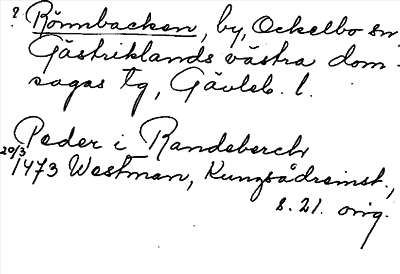 ? Rönnbacken, by, Ockelbo sn,
Gästriklands västra dom-
sagas tg, Gävleb. l.
Peder i Randeberch
20/3 1473 Westman, Kungsådreinst.,
s. 21. orig.